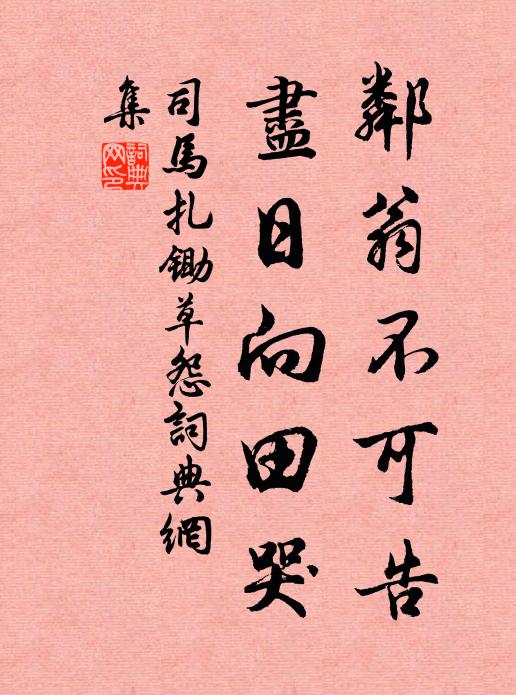 鄰翁不可告
盡日向田哭
司馬扎鋤草怨詞典網
集
詞典
网印